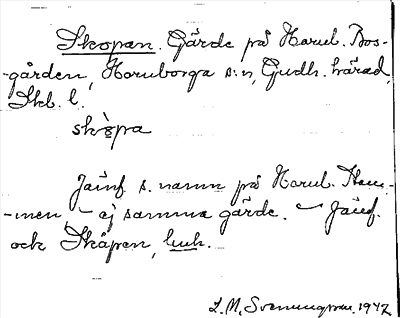 Skopan. Gärde på Hornb. Bos-
-gården, Hornborga s:n, Gudh. härad,
Skb. l.
skòpa
Jämf. s. namn på Hornb. Ham-
-men, – ej samma gärde. – Jämf.
ock Skåpen, ibid.
L. M. Svenungsson. 1947